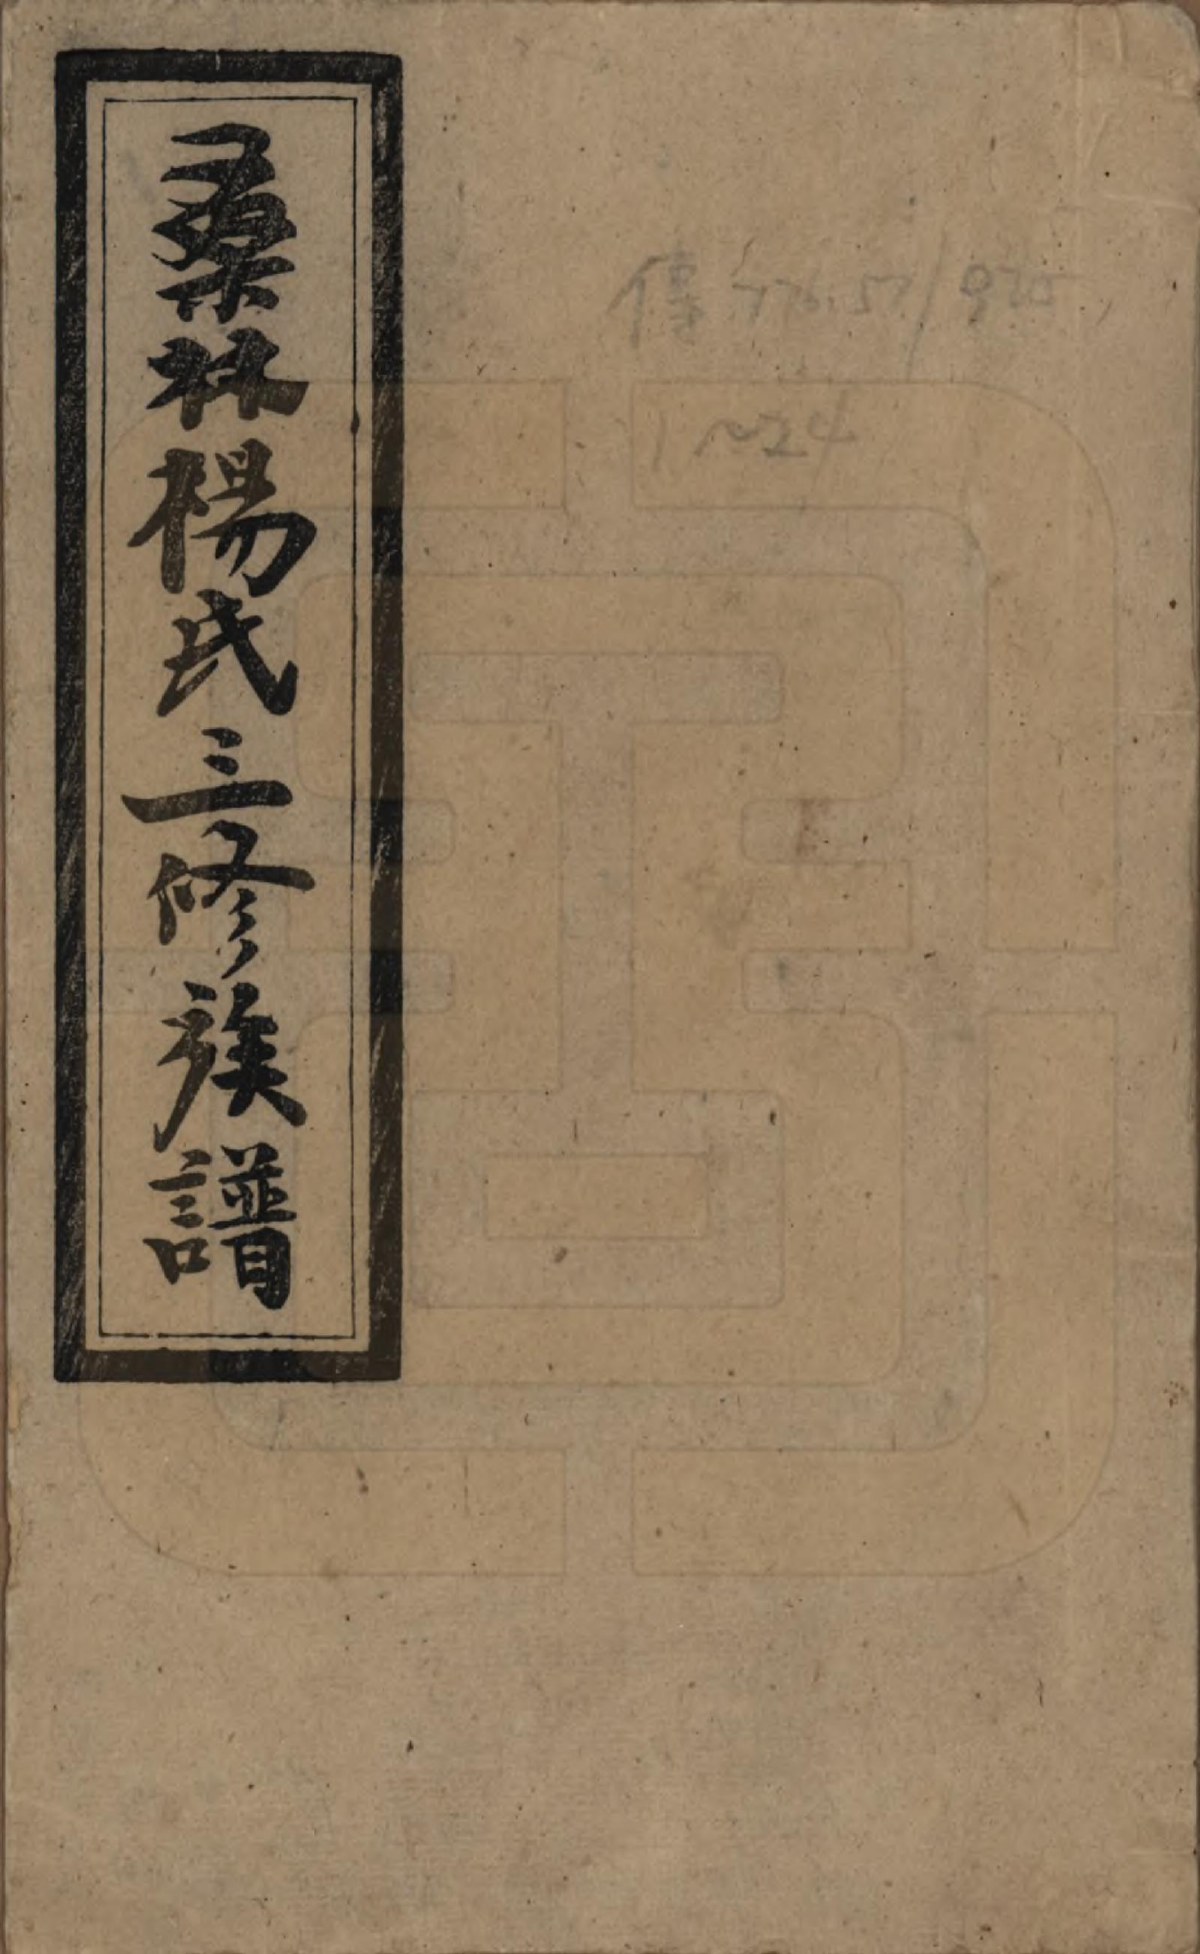 桑林楊氏三修族譜
傳776.57/925
1~24